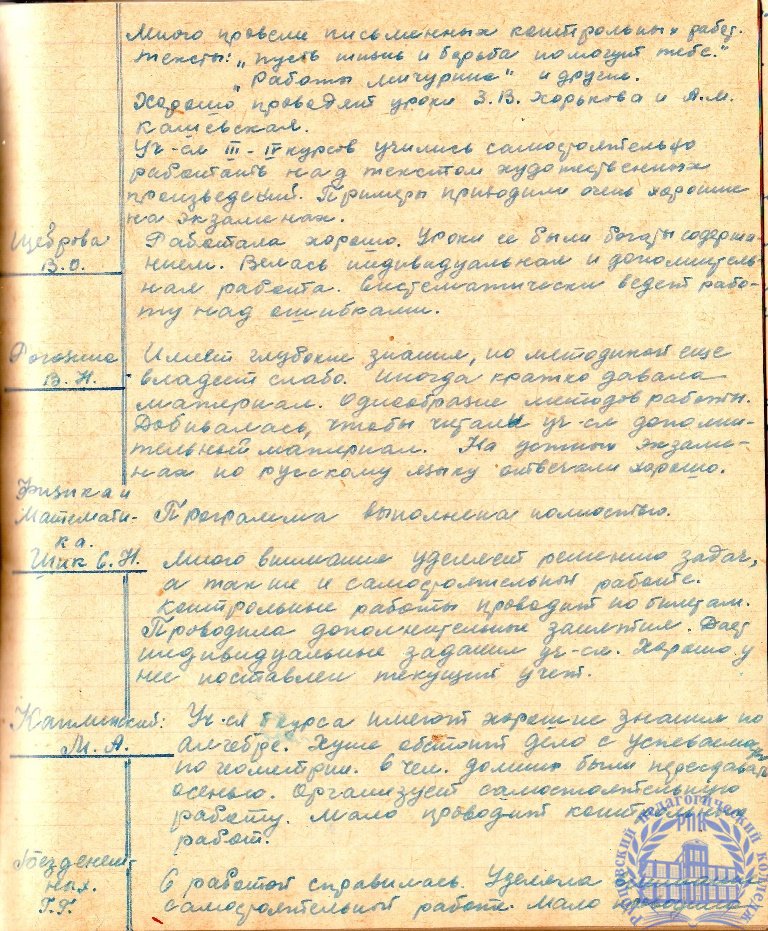 Много провели письменных контрольных работ.
Тексты: „Пусть жизнь и борьба помогут тебе."
„Работы Мичурина" и другие.
Хорошо проводят уроки З.В. Харькова и А.М.
Кашевская.
Уч-ся III - IV курсов учились самостоятельно
работать над текстом художественных
произведений. Примеры приводили очень хорошие
на экзаменах.
Щеброва
В.О.
Работала хорошо. Уроки ее были богаты содержа-
нием. Велась индивидуальная и дополнитель-
ная работа. Систематически ведет рабо-
ту над ошибками.
Рогозина
В. Н.
Имеет глубокие знания, но методикой еще
владеет слабо. Иногда кратко давала
материал. Однообразие методов работы.
Добивалась, чтобы читали уч-ся дополни-
тельный материал. На устных экзаме-
нах по русскому языку отвечали хорошо.
Физика и
Математи-
ка.
Программа выполнена полностью.
Шик С.Н.
Много внимания уделяет решению задач,
а также и самостоятельной работе.
Контрольные работы проводит по билетам.
Проводила дополнительные занятия. Дает
индивидуальные задания уч-ся. Хорошо у
нее поставлен текущий учет.
Каплинский:
М. А.
Уч-ся курса имеют хорошие знания по
алгебре. Хуже обстоит дело с успеваемо
по геометрии. 6 чел. должны были пересдавать
осенью. Организует самостоятельную
работу. Мало проводит контрольных
работ.
Безденеж-
ных.
Г.Г.
С работой справилась. Уделяла
самостоятельной работе. Мало проводила
Рубцовский педагогический колледж
РПК